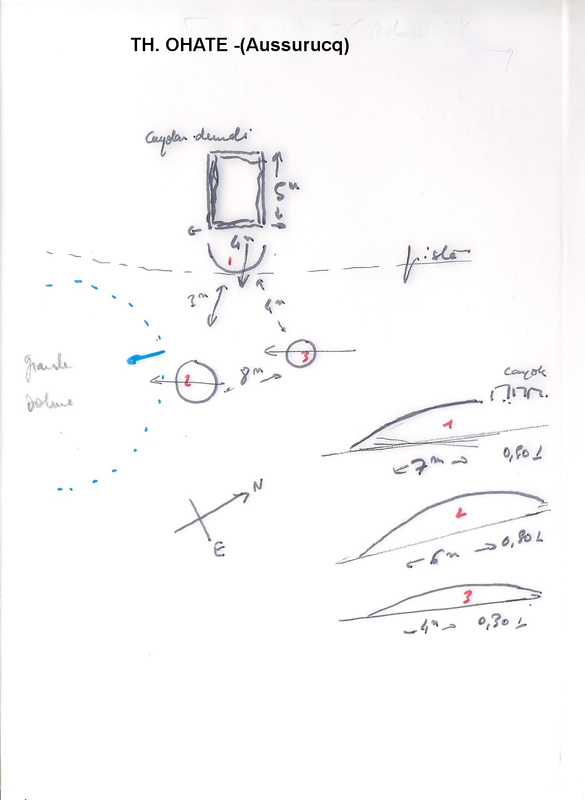 TH. OHATE -(Aussurucq)
5m
4m
1
piste
3m
4m
grande
doline
2
8m
3
N
E
1
7m
0,80
2
6m
0,80
3
4m
0,30